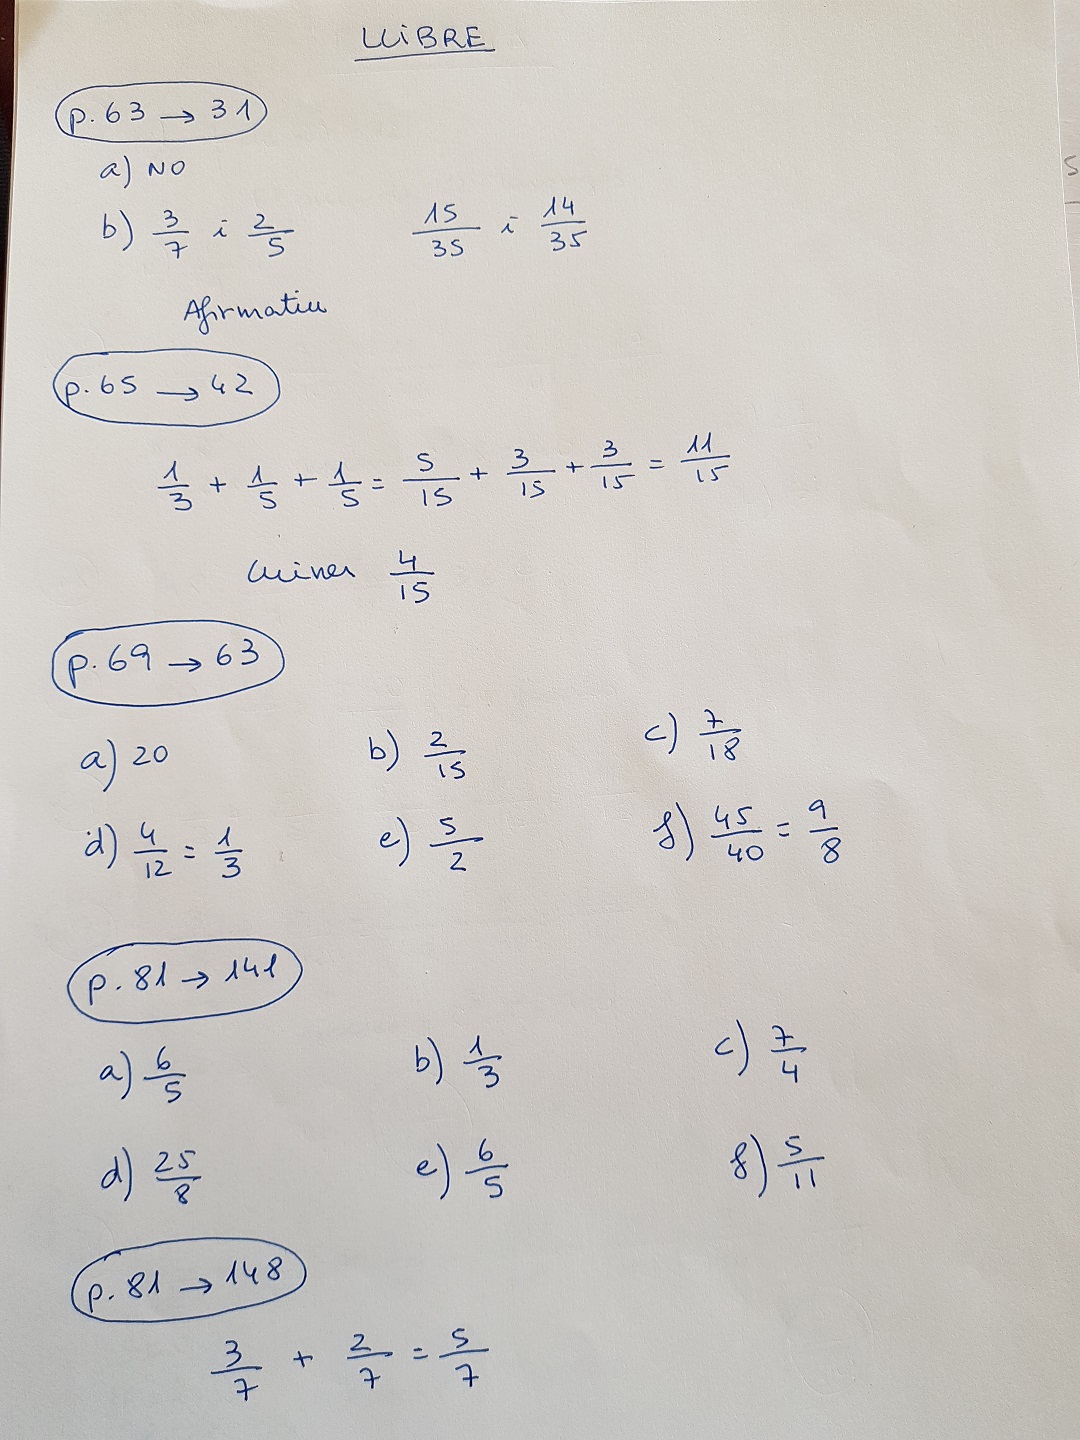 LLIBRE
p. 63 → 31
a) NO
b) 3/7 i 2/5 15/35 i 14/35
Afirmatiu
p. 65 → 42
1/3 + 1/5 + 1/5 = 5/15 + 3/15 + 3/15 = 11/15
4/15
p. 69 → 63
a) 20 b) 2/15 c) 7/18
d) 4/12 = 1/3 e) 5/2 f) 45/40 = 9/8
p. 81 → 141
a) 6/5 b) 1/3 c) 7/4
d) 25/8 e) 6/5 f) 5/11
p. 81 → 148
3/7 + 2/7 = 5/7